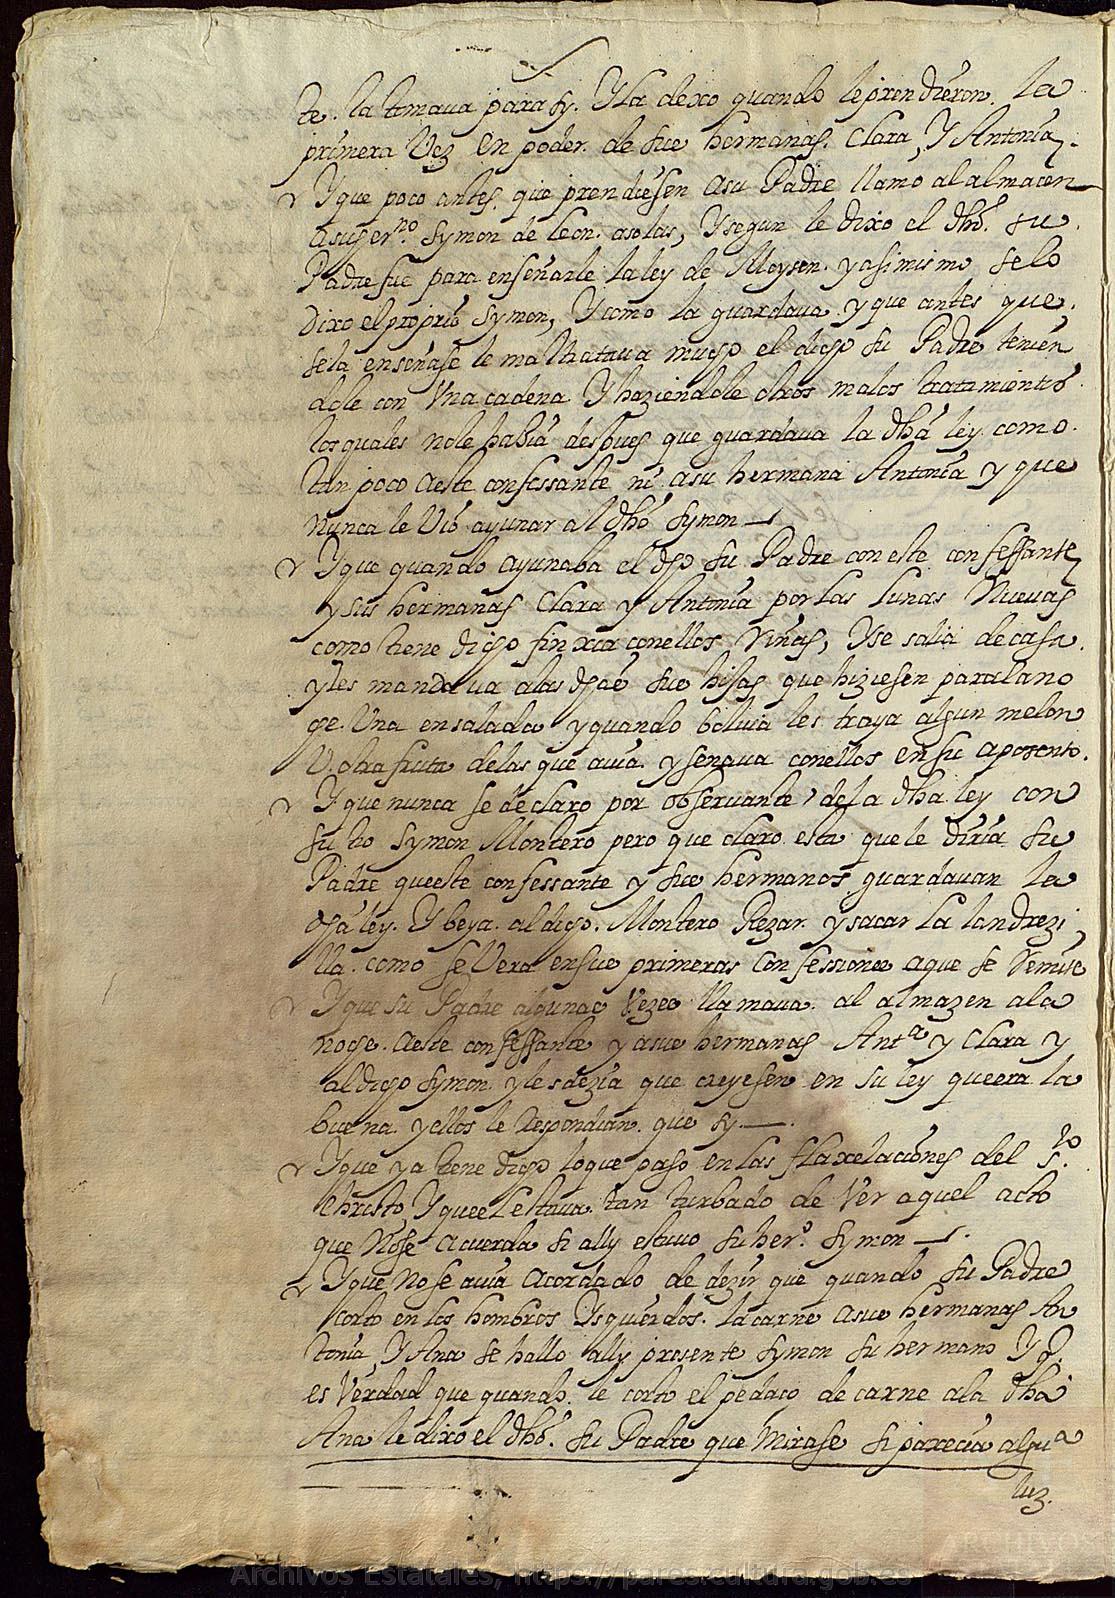 te. la tomaua para sy. Y la dexo quando le prendieron. la
primera Vez en poder. de sus hermanas. Clara, Y Antonia,.
Y que poco antes, que prendiesen a su Padre llamo al almacen
a su her.no Symon de leon. a solas, Y segun le dixo el dho. su.
Padre fue para enseñarle la ley de Moysen. y asi mismo se lo
Dixo el proprio Symon, Y como la guardaua. y que antes que.
se la enseñase le maltrataua mucho el dicho su Padre tenien
dole con Vna cadena Y haziendole otros malos tratamientos.
los quales no le habia despues que guardaua la dha ley. como.
tan poco a este confessante ni a su hermana Antonia y que
nunca le Vio ayunar al dho Symon —
Y que quando ayunaba el dho su Padre con este confessante,
y sus hermanas Clara y Antonia por las lunas Nueuas
como tiene dicho finxia con ellos Riñas, Y se salia de casa.
y les mandaua a las dhas sus hijas que hiziesen para la no
che. Una ensalada y quando boluia les traya algun melon
V. otra fruta de las que auia. y senaua con ellos en su aposento.
Y que nunca se declaro por obseruante de la dha ley con
su tio Symon Montero pero que claro esta que le diria su
Padre que este confessante y sus hermanos guardauan la
dha ley. Y beya. al dicho. Montero Rezar. y sacar la landrezi
lla. como se Vera en sus primeras Confessiones a que se Remite
Y que su Padre algunas Vezes llamaua. al almazen a la
noche. a este confessante y a sus hermanas Ant.a y Clara y
al dicho Symon y les dezia que creyesen en su ley que era la
buena. y ellos le Respondian. que sy —.
Y que ya tiene dicho lo que paso en las flaxelaciones del S.to
Christo, Y que el estaua tan turbado de Ver aquel acto
que No se acuerda si ally estuuo su her.o Symon —.
Y que No se auia acordado de dezir que quando su Padre
corto en los hombros Ysquierdos. la carne a sus hermanas An
tonia, Y Ana se hallo ally presente Symon su hermano Y q.
es Verdad que quando. le corto el pedaço de carne a la dha
Ana le dixo el dho. su Padre que Mirase si parecia algu.a
luz.
Archivos Estatales, https://pares.cultura.gob.es